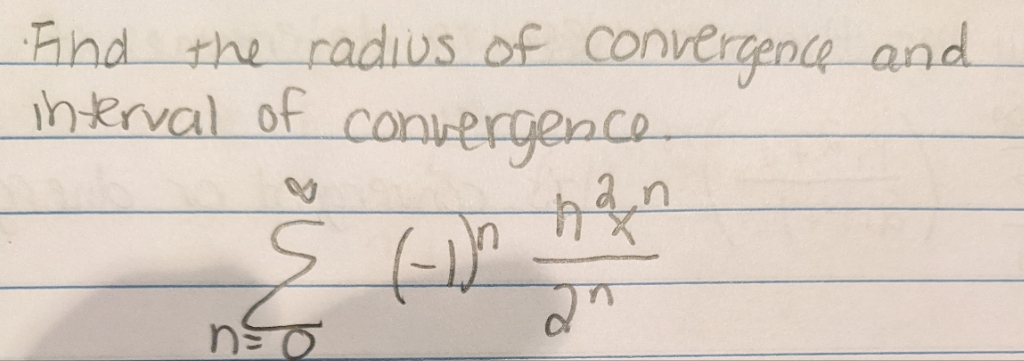 Find the radius of convergence and
interval of convergence.
∞
∑ (-1)^n n^2 x^n / 2^n
n=0